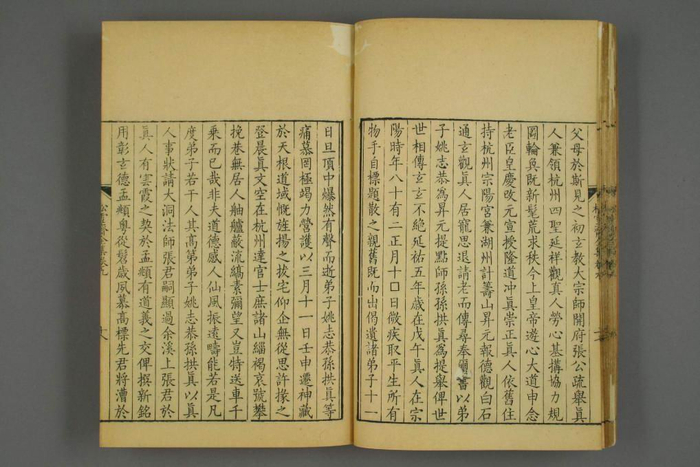 父母於斯見之初玄教大宗師開府張公疏舉眞
人兼領杭州四聖延祥觀眞人勞心基搆協力規
圓輪奐旣新髦荒求秩今上皇帝遊心大道申念
老臣皇慶改元宣授隆道冲眞崇正眞人依舊住
持杭州宗陽宮兼湖州計籌山昇元報德觀白石
通玄觀眞人居寵思退請老而傳尋奉璽書以弟
子姚志恭為昇元提點師孫孫拱眞為提舉俾世
世相傳玄玄不絕延祐五年歲在戊午眞人在宗
陽時年八十有二正月十口日微疾取平生所有
物手自標題散之親舊旣而出偈遺諸弟子十一
日旦頂中爆然有聲而逝弟子姚志恭孫拱眞等
痛慕罔極竭力營護以三月十一日壬申遷神藏
於天根道域慨旌揚之拔宅仰企無從思許掾之
登晨眞文空在杭州達官士庶諸山緇褐哀號攀
挽巷無居人舳艫蔽流縞素彌望又豈特送車千
乘而已哉非夫道德感人仙風振遠疇能若是凡
度弟子若干人其高弟弟子姚志恭孫拱眞以眞
人事狀請大洞法師張君嗣顯過余溪上張君於
眞人有雲霞之契於孟頫有道義之交俾撰新銘
用彰玄德孟頫粤從髫歲夙慕高標先君將漕於